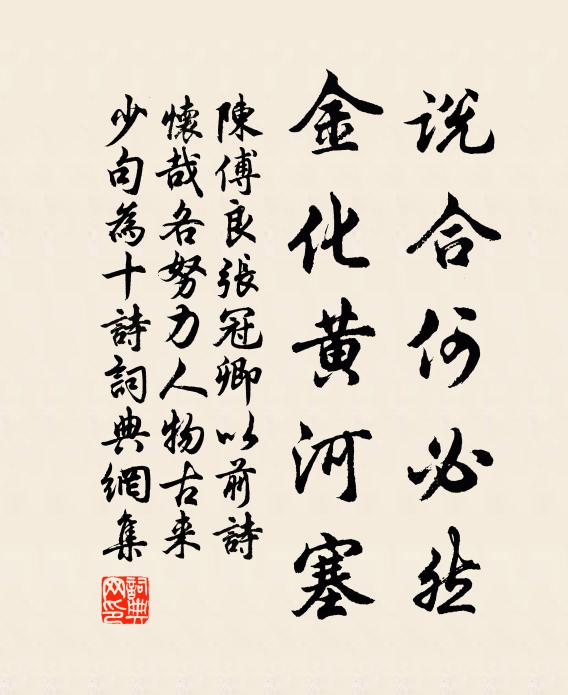 说合何必然
金化黄河塞
陳傅良張冠卿以前詩
懷哉各努力人物古来
少句為十詩詞典網集
詞典網印